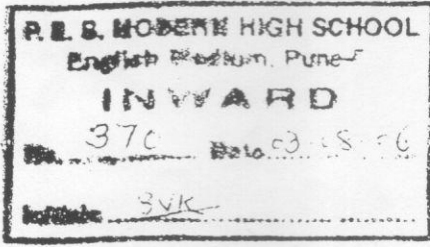 P. E. S. MODERN HIGH SCHOOL
English Medium, Pune-5
INWARD
No. 370 Date 03-08-06
Initials SVK